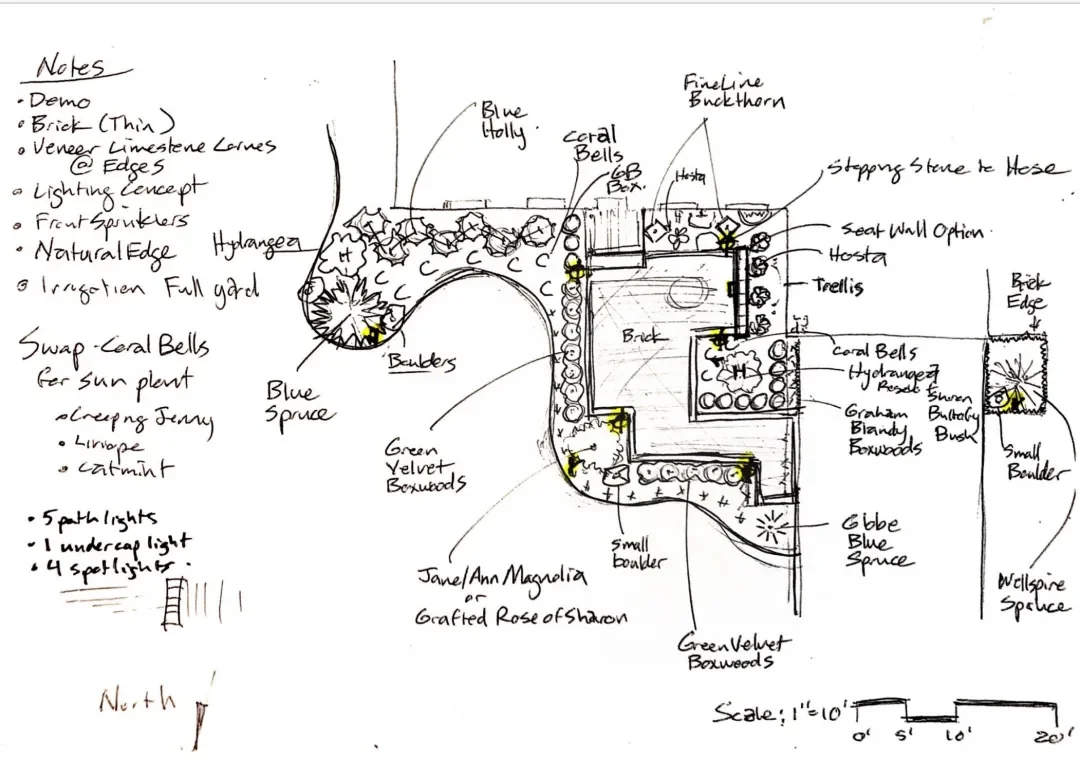 Notes
• Demo
• Brick (Thin)
• Veneer Limestone
@ Edges
• Lighting Concept
• Front Sprinklers
• Natural Edge
• Irrigation Full yard
Swap - Coral Bells
for sun plant
• Creeping Jenny
• Liriope
• Catmint
• 5 path lights
• 1 undercap light
• 4 spotlights
North
Hydrangea
Blue
Holly
Coral
Bells
GB
Box.
FineLine
Buckthorn
Hosta
Stepping Stone to Hose
Seat Wall Option
Hosta
Trellis
Brick
H
H
C C C C C C C C
Boulders
Blue
Spruce
Green
Velvet
Boxwoods
Coral Bells
Hydrangea
Graham
Blandy
Boxwoods
Bush
Brick
Edge
Small
Boulder
Wellspire
Spruce
Globe
Blue
Spruce
Small
boulder
Jane/Ann Magnolia
or
Grafted Rose of Sharon
Green Velvet
Boxwoods
Scale: 1"=10'
0' 5' 10' 20'